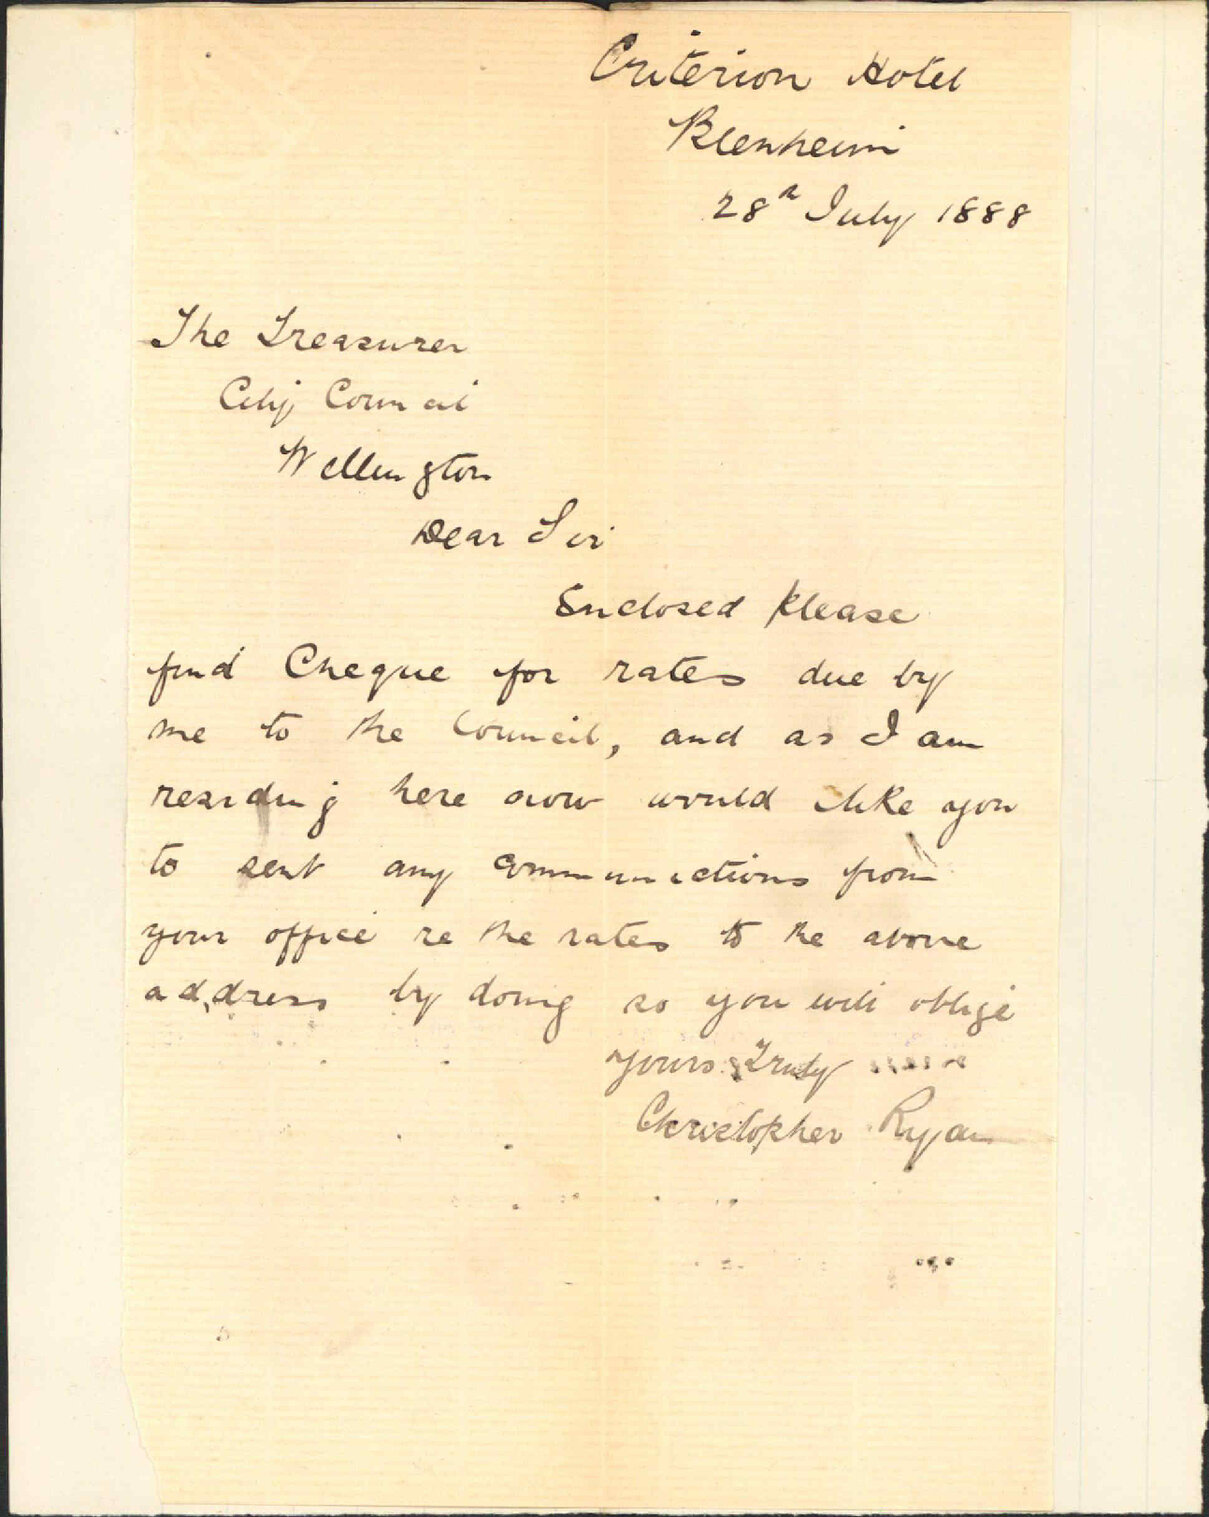 Criterion Hotel
Blenheim
28th July 1888
The Treasurer
City Council
Wellington
Dear Sir
Enclosed Please
find Cheque for rates due by
me to the Council, and as I am
residing here now would like you
to sent any communications from
your office re the rates to the above
address by doing so you will oblige
yours Truly
Christopher Ryan